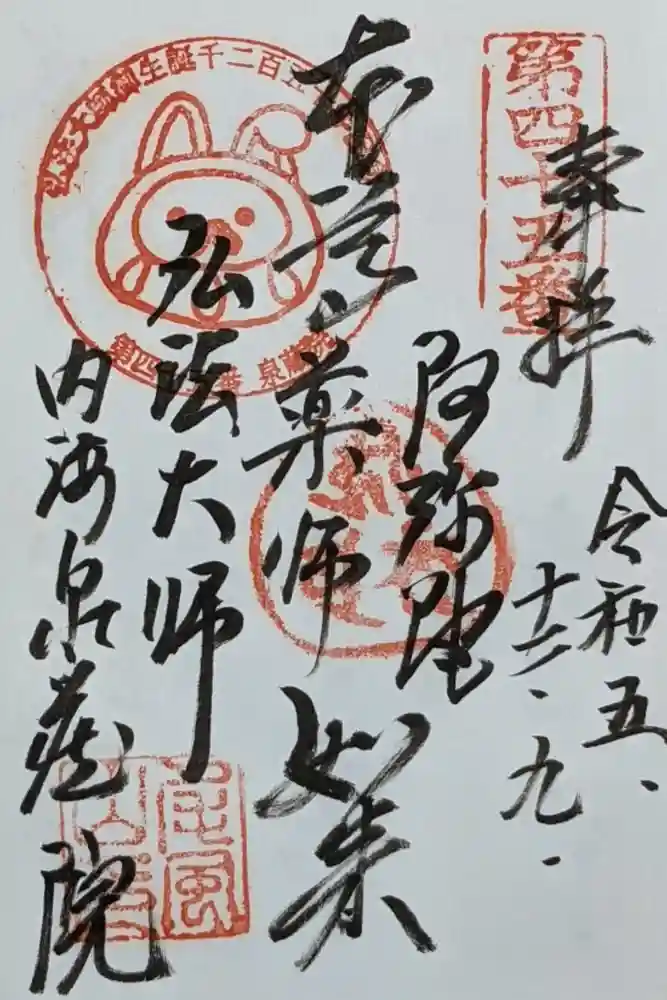 第四十五番
奉拝
令和五、
十二、九、
阿弥陀
本尊薬師如来
弘法大師
内海泉蔵院
弘法大師御生誕千二百五
泉蔵院